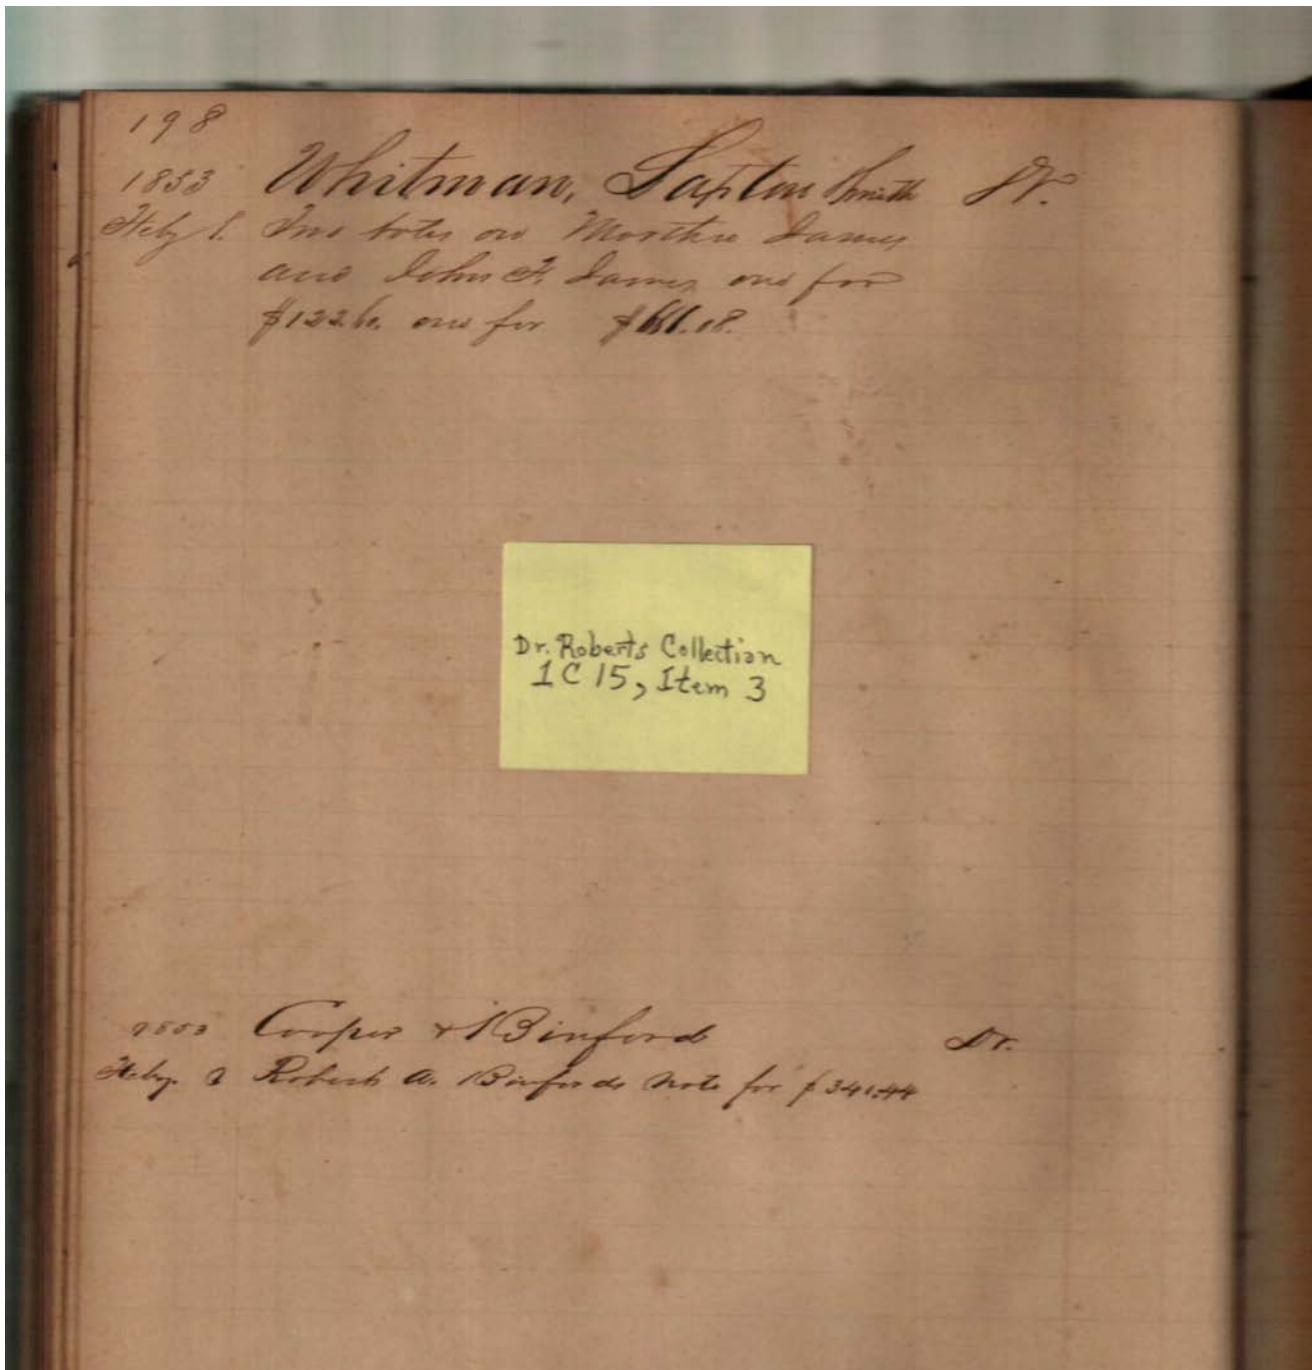 198
1853 Whitman, Saxton Smith Dr.
Feby 1. Two notes on Martha James
and John F. James one for
$122.60. one for $61.18.
Dr. Roberts Collection
1C15, Item 3
1853 Cooper & Binford Dr.
Feby. 2 Robert A. Binfords note for $341.44